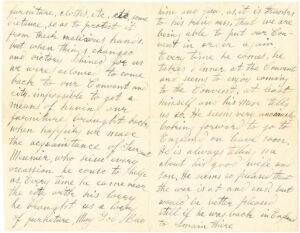 furniture, clothes, etc, some
distance, so as to protect it
from their malicious hands
but when things changed
and victory shined for us
we were allowed to come
back to our Convent and
city, impossible to get a
means of having any
furniture brought back
when happily we made
the acquaintance of
who seized every
occasion he could to help
us. Every time he came near
the city with his lorry
he brought us a load
of furniture, May God Bless
him and you, as it is thanks,
to his kindness, that we are
being able to put our Con-
vent in order again
Every time he comes, he
takes dinner, at the Convent
and seems to enjoy coming
to the Convent, at least
himself and his mate tells
us so. He seems very anxiously
looking forward to go to
England on leave soon,
he is always telling us
about his good wife and
son, He seems so pleased that
the war is at an end, but
would be better pleased
still if he was back in England
to remain there